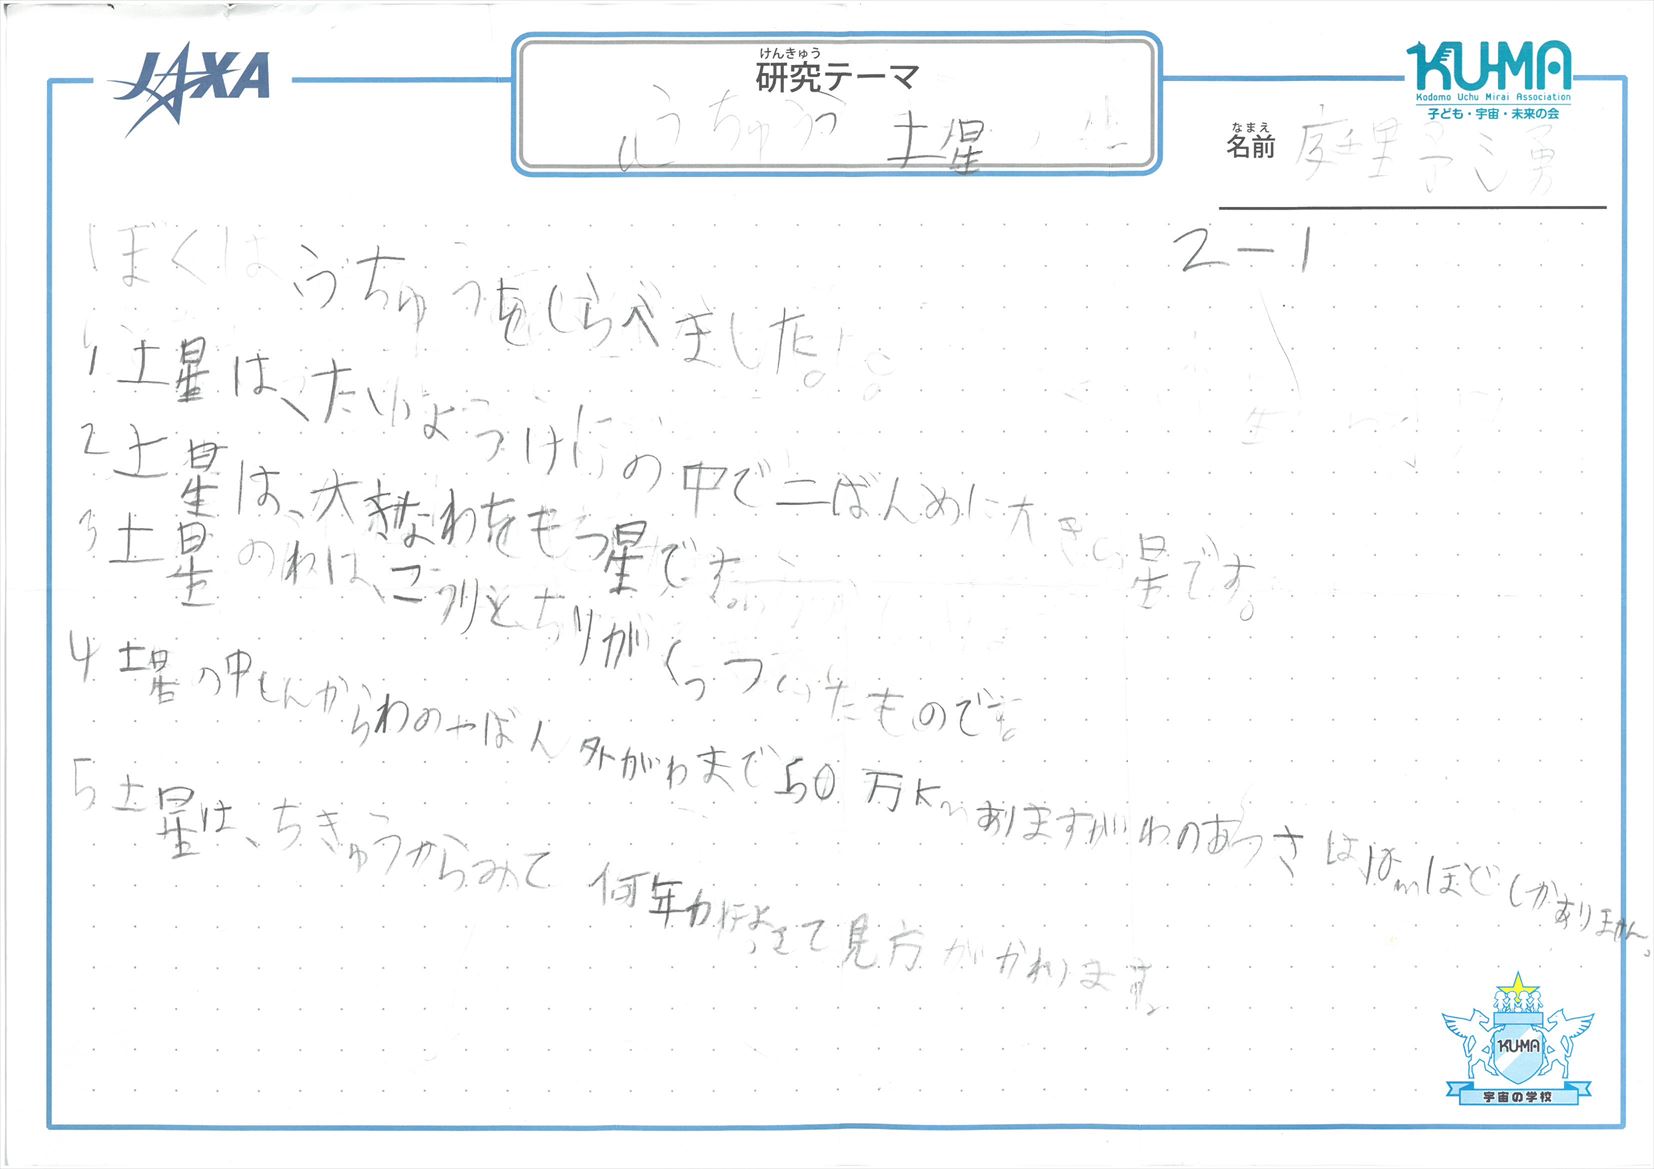 JAXA
けんきゅう
研究テーマ
うちゅう 土星
KU-MA
Kodomo Uchu Mirai Association
子ども・宇宙・未来の会
なまえ
名前
庭野
2-1
ぼくはうちゅうをしらべました。
1 土星は、たいようけいの中で二ばんめに大きい星です。
2 土星は、大きなわをもつ星です。
3 土星のわは、こうりとちりがくっついたものです。
4 土星の中しんからわのやばん外がわまで50万Kmありますがわのあつさは10mほどしかありません。
5 土星は、ちきゅうからみて何年かによって見方がかわります。
KU-MA
宇宙の学校